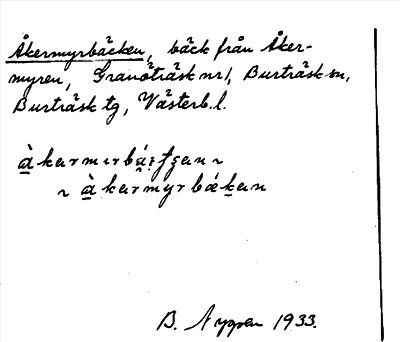 Åkermyrbäcken, bäck från Åker-
myren, Granöträsk nr 1, Burträsk sn,
Burträsk tg, Västerb. l.
àkarmyrbákan
B. Nyppen 1933.